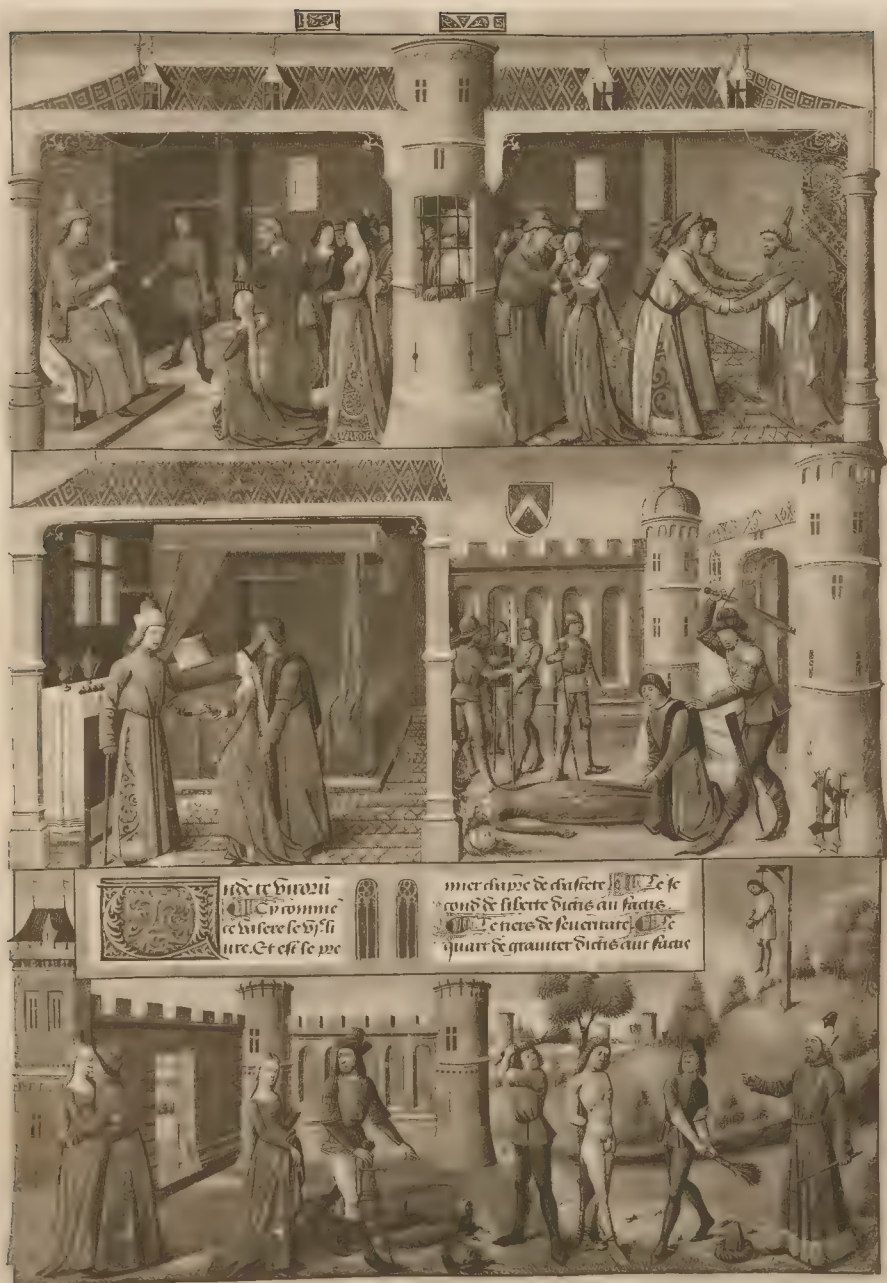 Unde te virorū
¶ Cy comme
ce valere le vjᵉ li
ure. Et est le pre
mier chapre de chastete ¶ Le se
cond de liberte dictis au factis
¶ Le tiers de seueritate ¶ Le
quart de grauiter dictis aut factis